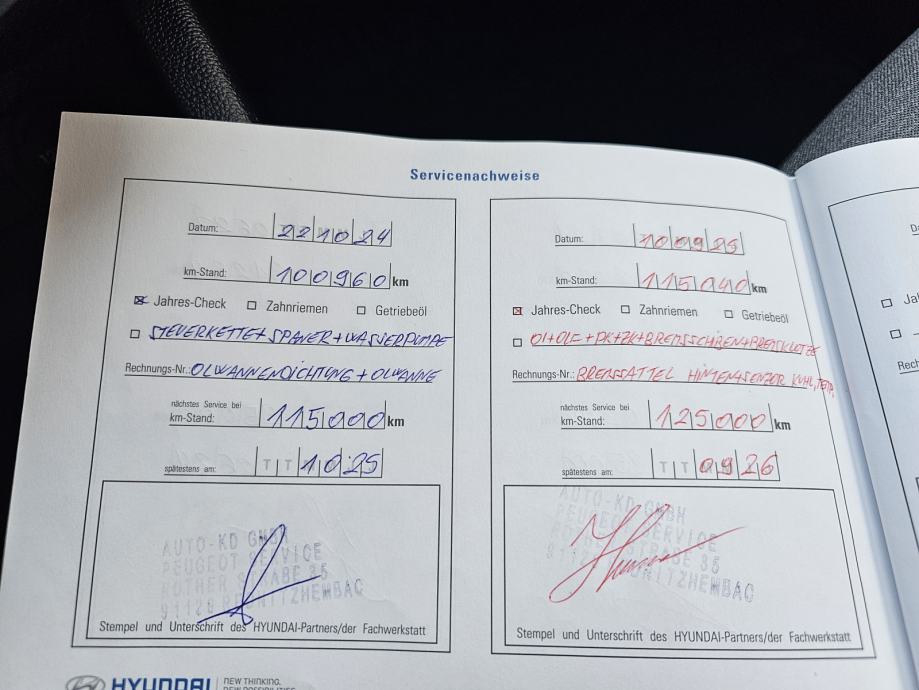 Servicenachweise
Datum: 22 10 24
km-Stand: 100960 km
Jahres-Check Zahnriemen Getriebeöl
STEUERKETTE + SPANER + WASSERPUMPE
Rechnungs-Nr.: OLWANNENDICHTUNG + OLWANNE
nächstes Service bei
km-Stand: 115000 km
spätestens am: T T 10 25
AUTO-KD GMBH
PEUGEOT SERVICE
ROTHER STRAßE 35
91126
Stempel und Unterschrift des HYUNDAI-Partners/der Fachwerkstatt
HYUNDAI NEW THINKING.
NEW POSSIBILITIES.
Datum: 10 09 25
km-Stand: 115040 km
Jahres-Check Zahnriemen Getriebeöl
+ PK+ZK+BREMSSCHIBEN+BREMSKLOTZE
Rechnungs-Nr.: BREMSSATTEL HINTEN+SENZOR KUHL,TEMP.
nächstes Service bei
km-Stand: 125000 km
spätestens am: T T 09 26
AUTO-KD GMBH
PEUGEOT SERVICE
35
Stempel und Unterschrift des HYUNDAI-Partners/der Fachwerkstatt